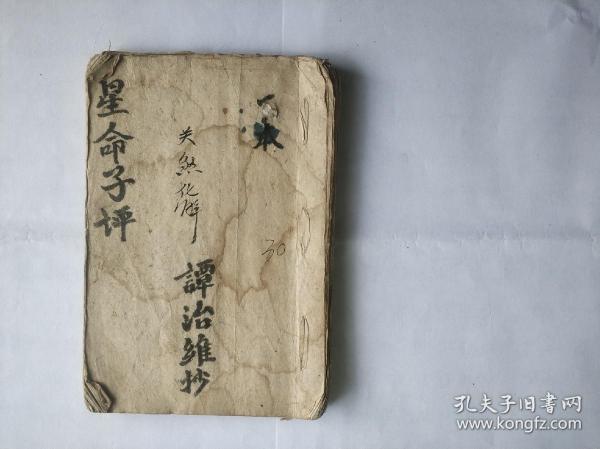 星命子评
关煞化解
譚治維抄
一本
30
孔夫子旧书网
www.kongfz.com